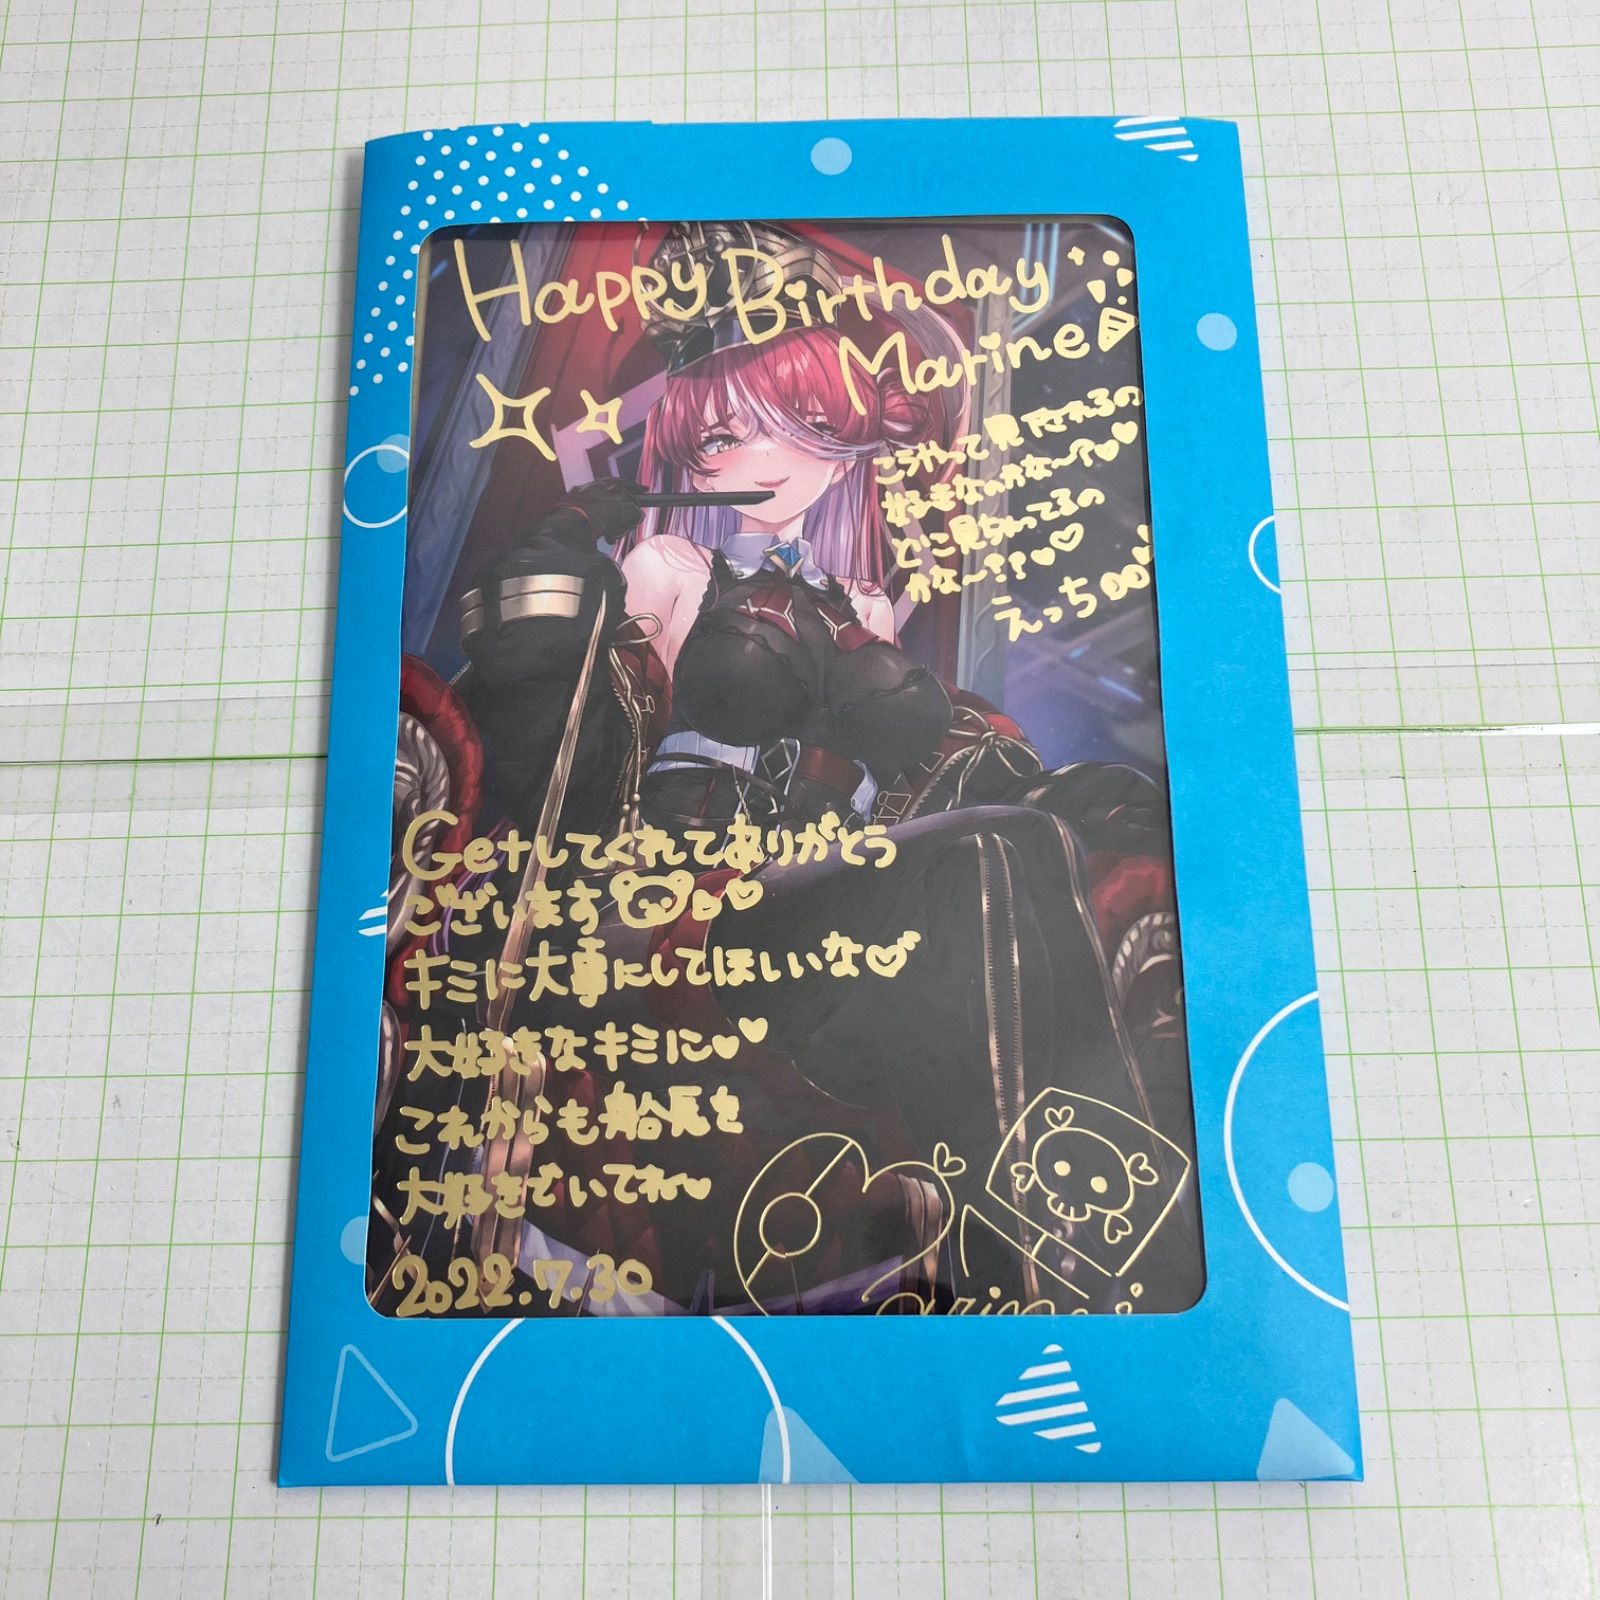 Happy Birthday
Marine
こうやって見下されるの
好きなのかな〜?♥♥
どこ見ちゃってるの
かな〜??♥♡
えっち
Getしてくれてありがとう
ございます♡
キミに大事にしてほしいな♡
大好きなキミに♥♥
これからも船長を
大好きでいてね♥
2022.7.30
Marine